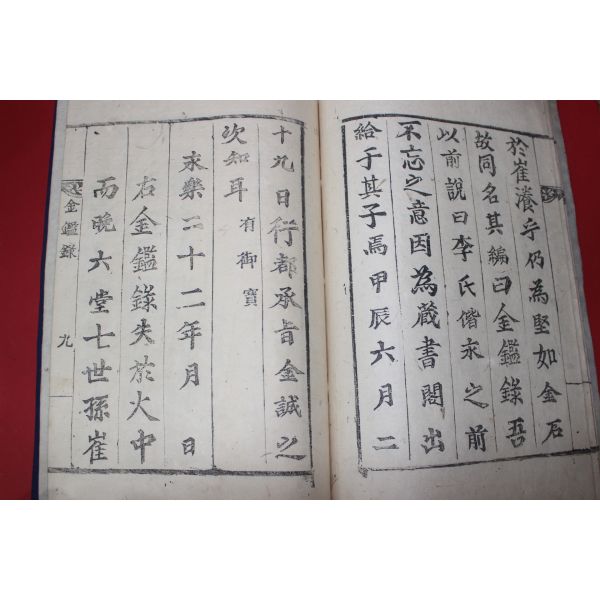 於崔瀁乎仍為堅如金石
故同名其編曰金鑑錄吾
以前說曰李氏偕來之前
不忘之意因為藏書閣出
給于其子焉甲辰六月二
十九日行都承旨金誠之
次知耳 有御寶
永樂二十二年月 日
右金鑑錄失於火中
而晚六堂七世孫崔
金鑑錄 九